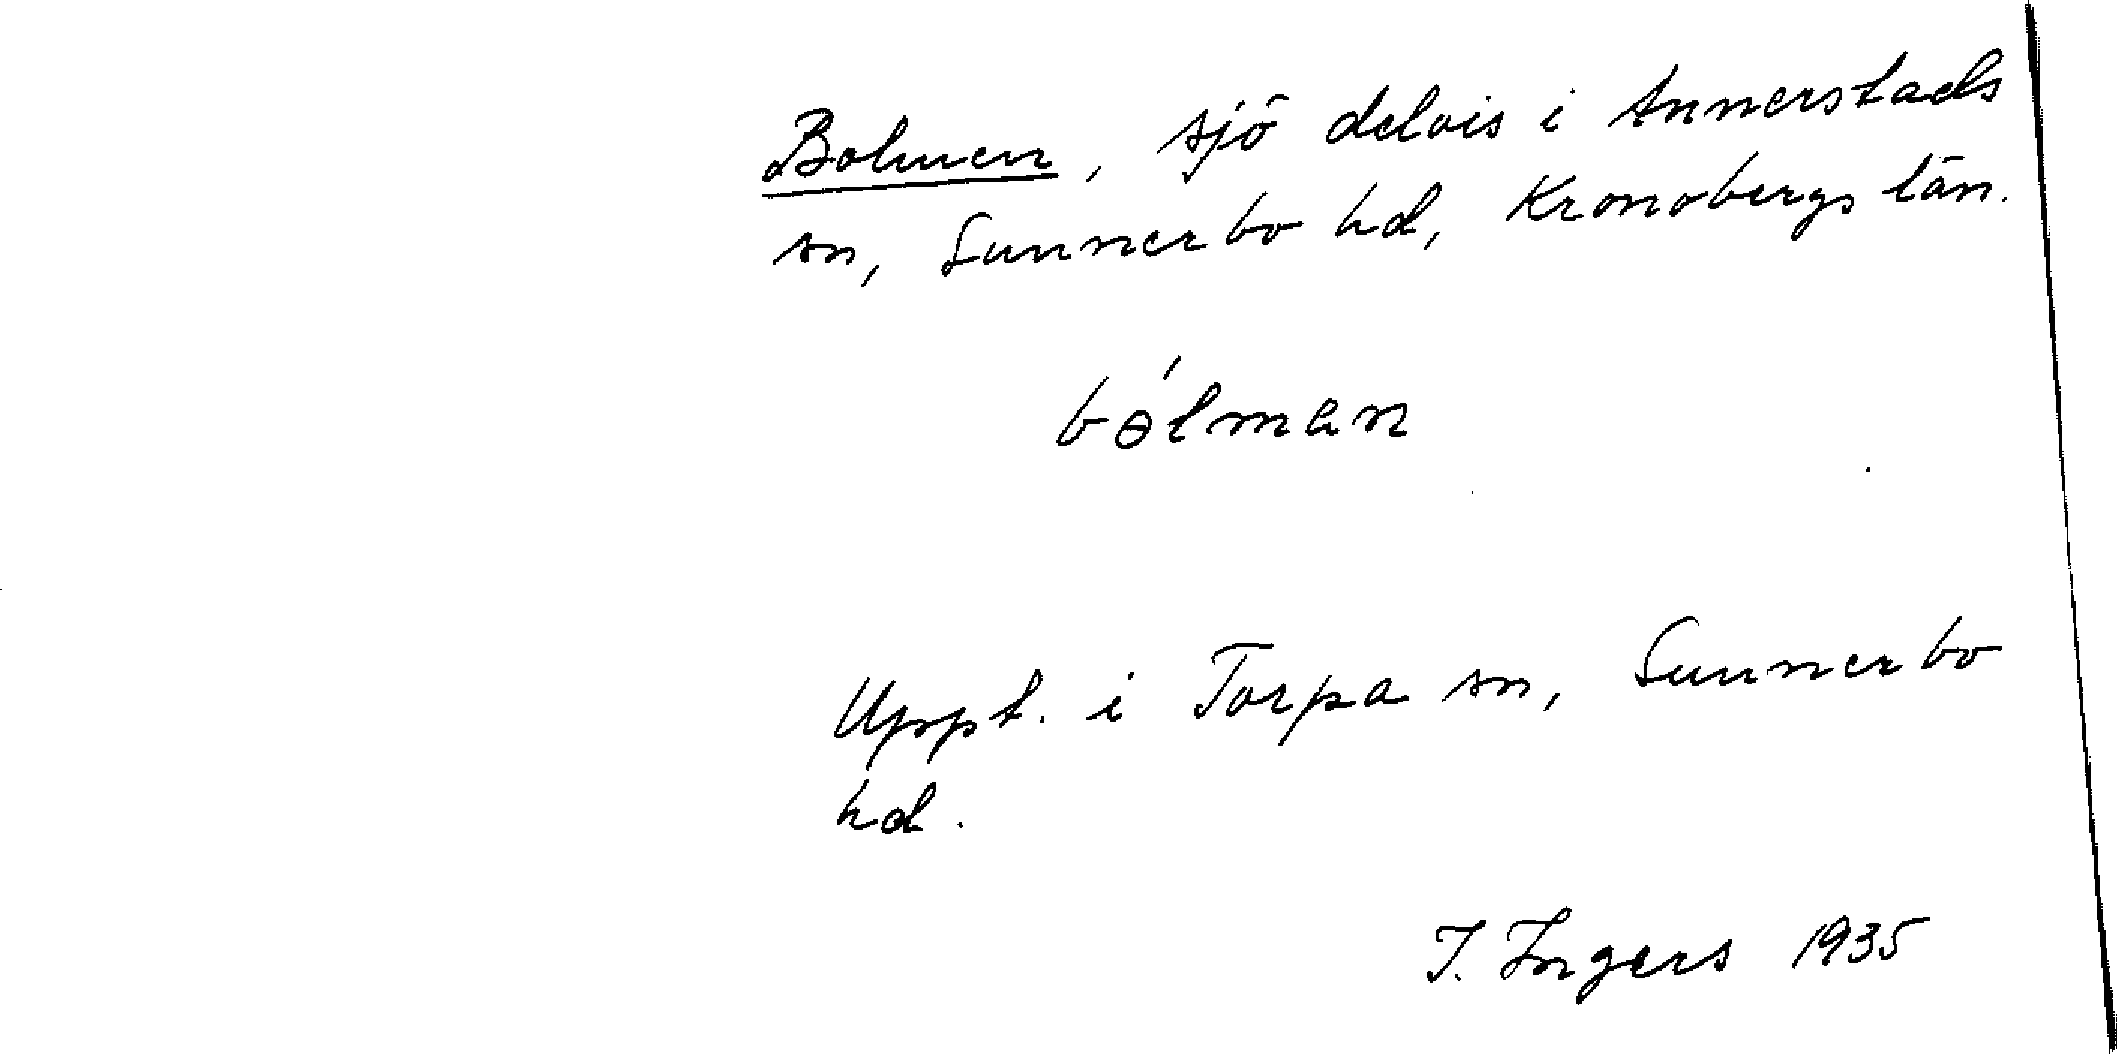 Bolmen, sjö delvis i Annerstads
sn, Sunnerbo hd, Kronobergs län.
bɵ́lman
Uppt. i Torpa sn, Sunnerbo
hd.
I. Ingers 1935